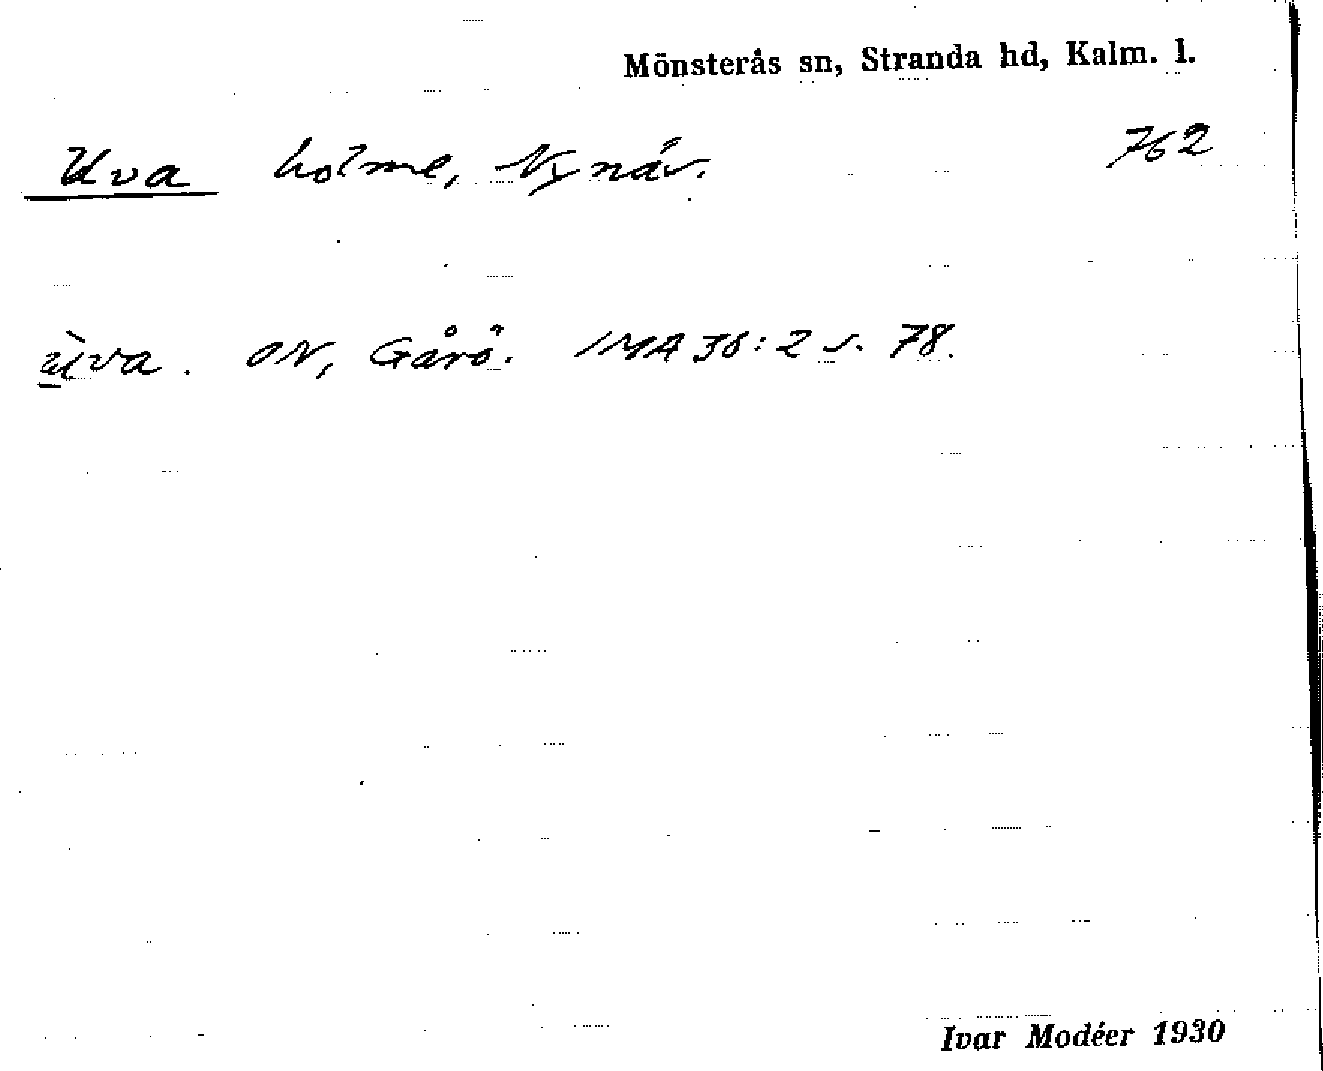 Mönsterås sn, Stranda hd, Kalm. l.
Uva holme, Nynäs. 762
ùva. ON, Gårö. IMA 38:2 s. 78.
Ivar Modéer 1930